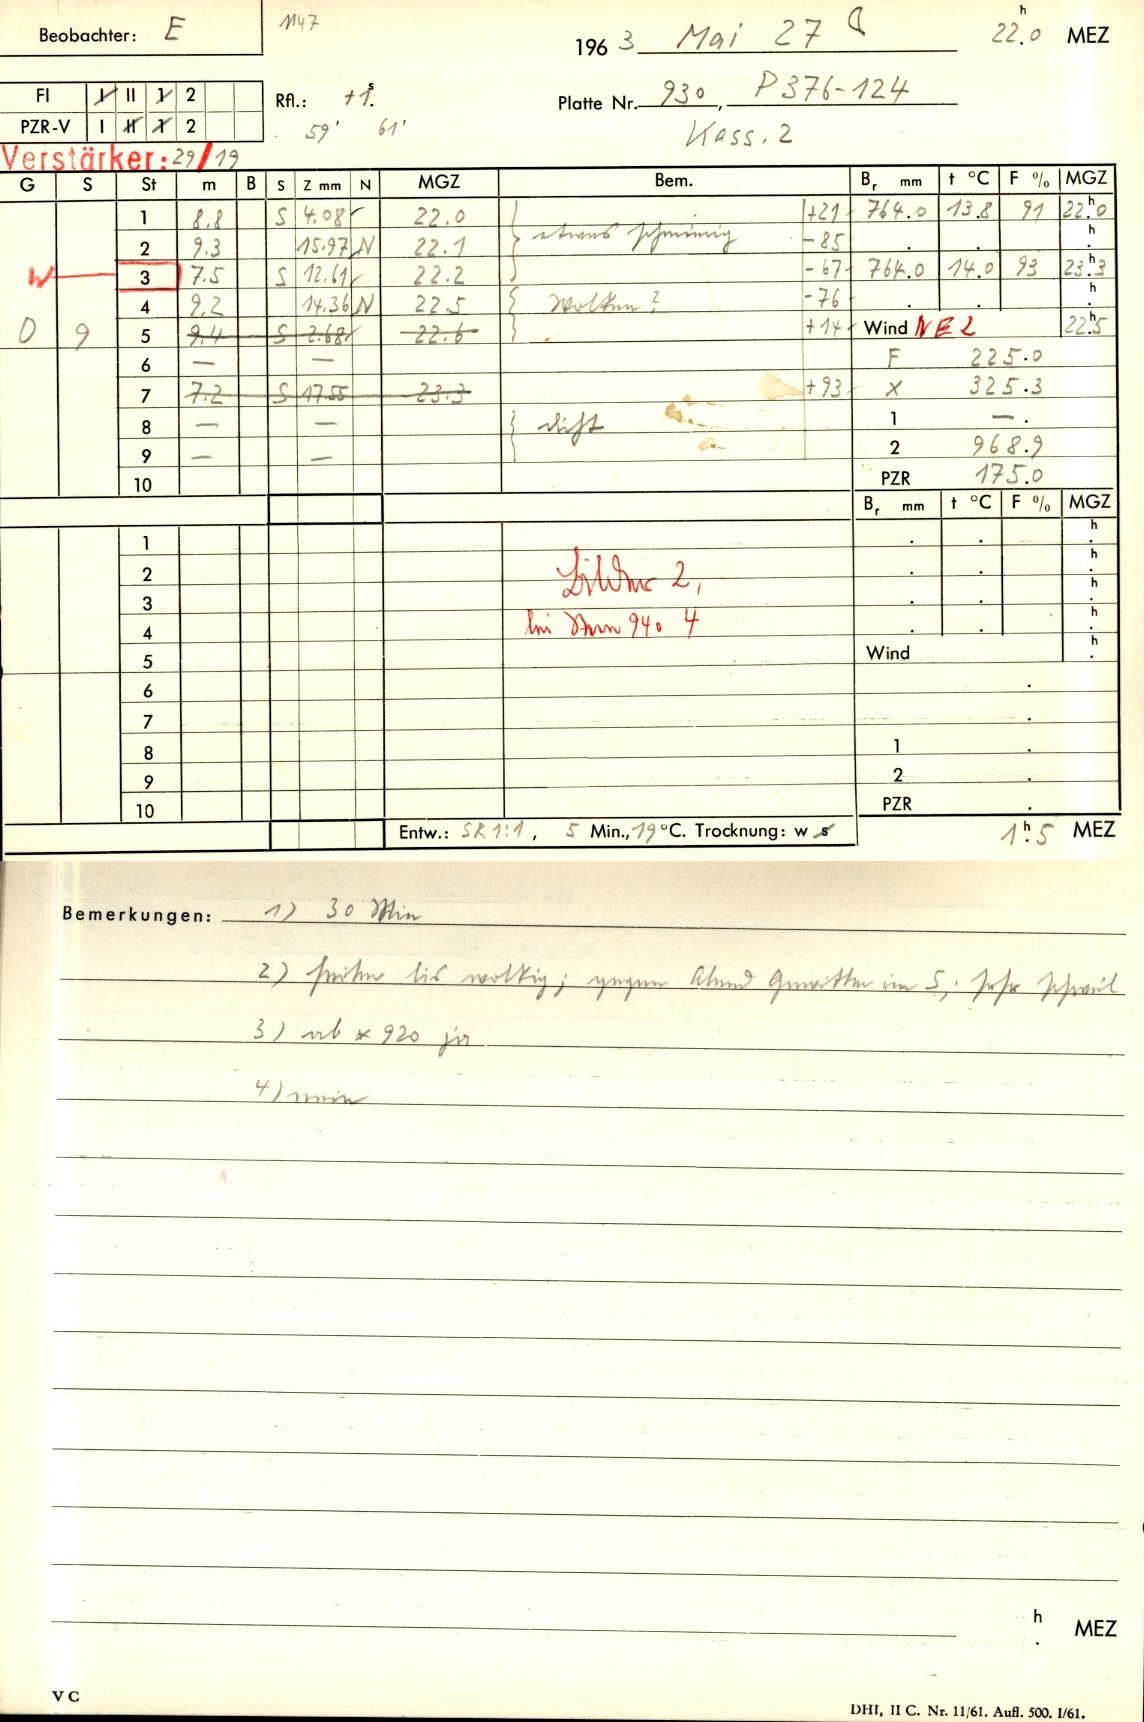 Beobachter: E
1147
1963 Mai 27
22h.0 MEZ
FI I II 1 2
PZR-V I II 1 2
Rfl.: +1s.
59' 61'
Platte Nr. 930, P376-124
Kass. 2
Verstärker: 29/19
G S St m B S Z mm N MGZ Bem. Br mm t °C F % MGZ
1 8.8 S 4.08 22.0 +21 764.0 13.8 91 22h.0
2 9.3 15.97 N 22.1 etwas -85 . . h.
W 3 7.5 S 12.61 22.2 -67 764.0 14.0 93 23h.3
4 9.2 14.36 N 22.5 Wolken? -76 . . h.
0 9 5 9.4 S 2.68 22.6 +14 Wind NE 2 22h.5
6 — — F 225.0
7 7.2 S 17.55 23.3 +93 X 325.3
8 — — dicht 1 — .
9 — — 2 968.9
10 PZR 175.0
Br mm t °C F % MGZ
1 . . h.
2 . . h.
3 Bilder 2, . . h.
4 bei 940 4 . . h.
5 Wind h.
6 .
7 .
8 1 .
9 2 .
10 PZR .
Entw.: SR 1:1, 5 Min., 19 °C. Trocknung: w s
1h.5 MEZ
Bemerkungen: 1) 30 Min
2) heiter bis wolkig; gegen Abend Gewitter im S, sehr schwül
3) ab * 920 ja
4) nein
h. MEZ
V C
DHI, II C. Nr. 11/61. Aufl. 500. I/61.